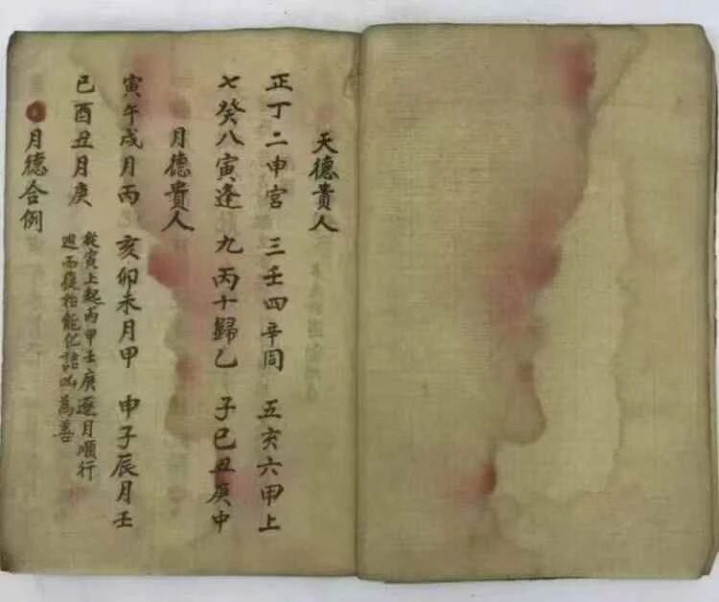 天德貴人
正丁二申宮 三壬四辛同 五亥六甲上
七癸八寅逢 九丙十歸乙 子巳丑庚中
月德貴人
寅午戌月丙 亥卯未月甲 申子辰月壬
巳酉丑月庚 從寅上起丙甲壬庚逐月順行
週而復始能化諸凶為善
月德合例